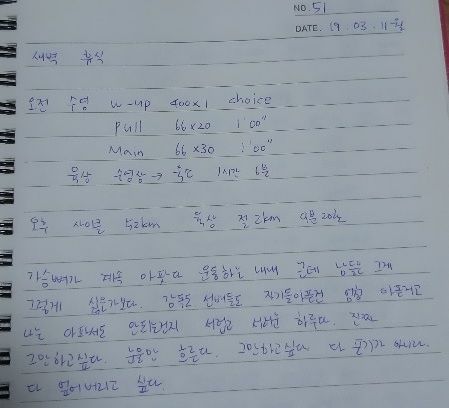 NO. 51
DATE. 19. 03. 11 월
새벽 휴식
오전 수영 W-up 400x1 choice
Pull 66x20 1'00"
Main 66x30 1'00"
육상 수영장→ 숙소 1시간 6분
오후 사이클 52km 육상 질2km 9분20초
가슴뼈가 계속 아팠다 운동하는 내내 근데 남들은 그게
그렇게 싫은가보다. 감독도 선배들도 자기들아픈건 엄청 아픈거고
나는 아파서도 안되는건지 서럽고 서러운 하루다. 진짜
그만하고싶다. 눈물만 흐른다. 그만하고싶다 다 포기가 아니라
다 엎어버리고 싶다.